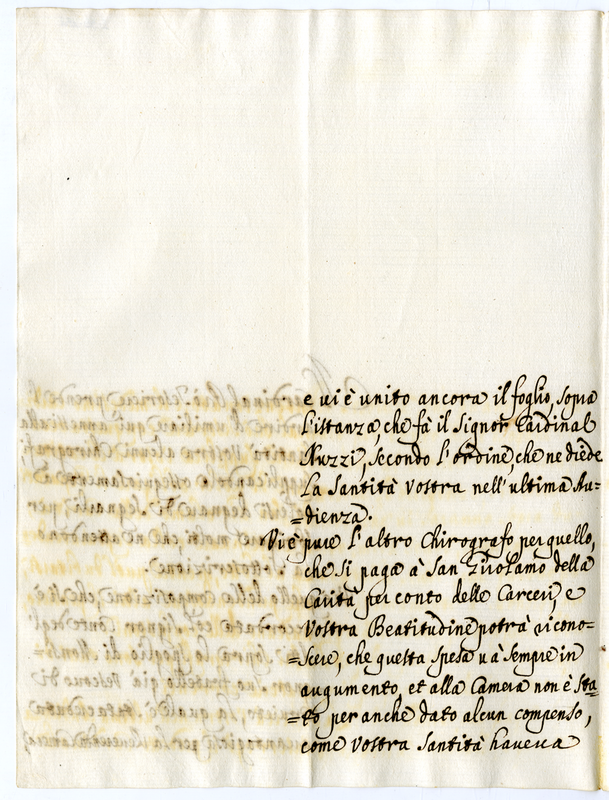 e vi è unito ancora il foglio, sopra
l'istanza, che fà il Signor Cardinal
Nuzzi, secondo l'ordine, che ne diede
la Santità Vostra nell'ultima Au=
=dienza.
Vi è pure l'altro Chirografo per quello,
che si paga à San Girolamo della
Carità per conto delle Carceri, e
Vostra Beatitudine potrà ricono=
=scere, che questa spesa và sempre in
augumento, et alla Camera non è sta=
=to per anche dato alcun compenso,
come Vostra Santità haveva